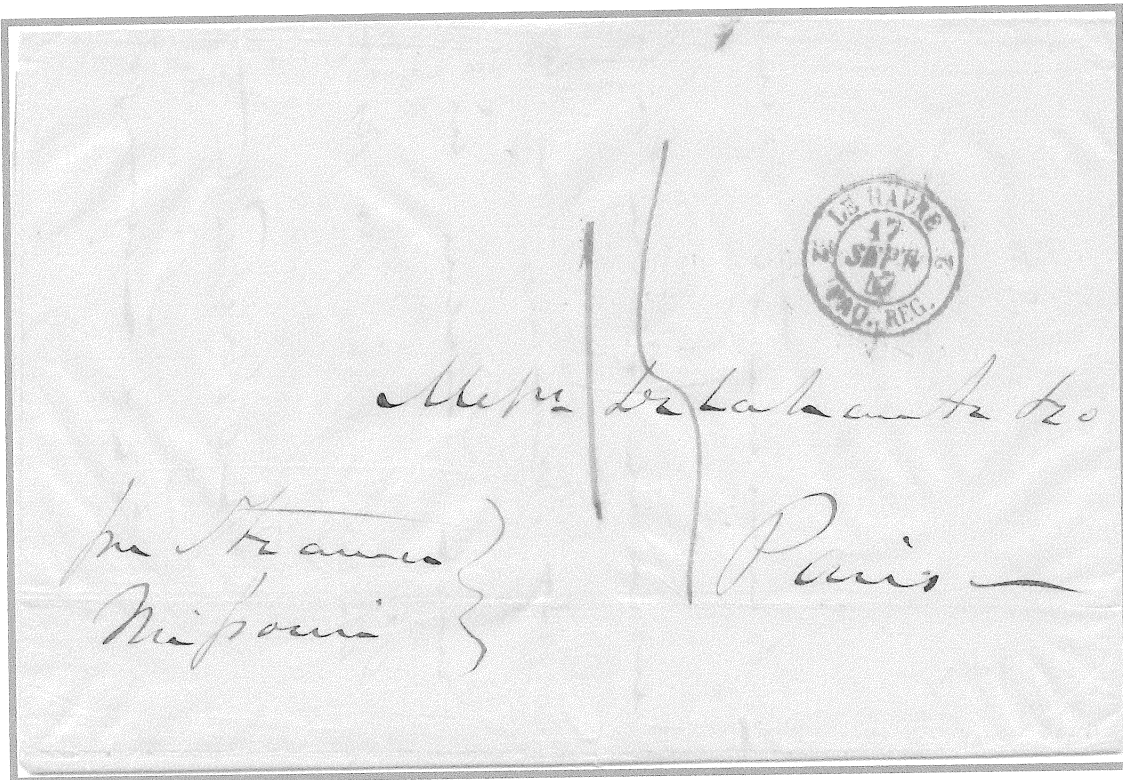 LE HAVRE
17
SEPT
47
PAQ. REG.
2 2
15
Messrs Delahante & Co
Paris
per Steamer
Missouri